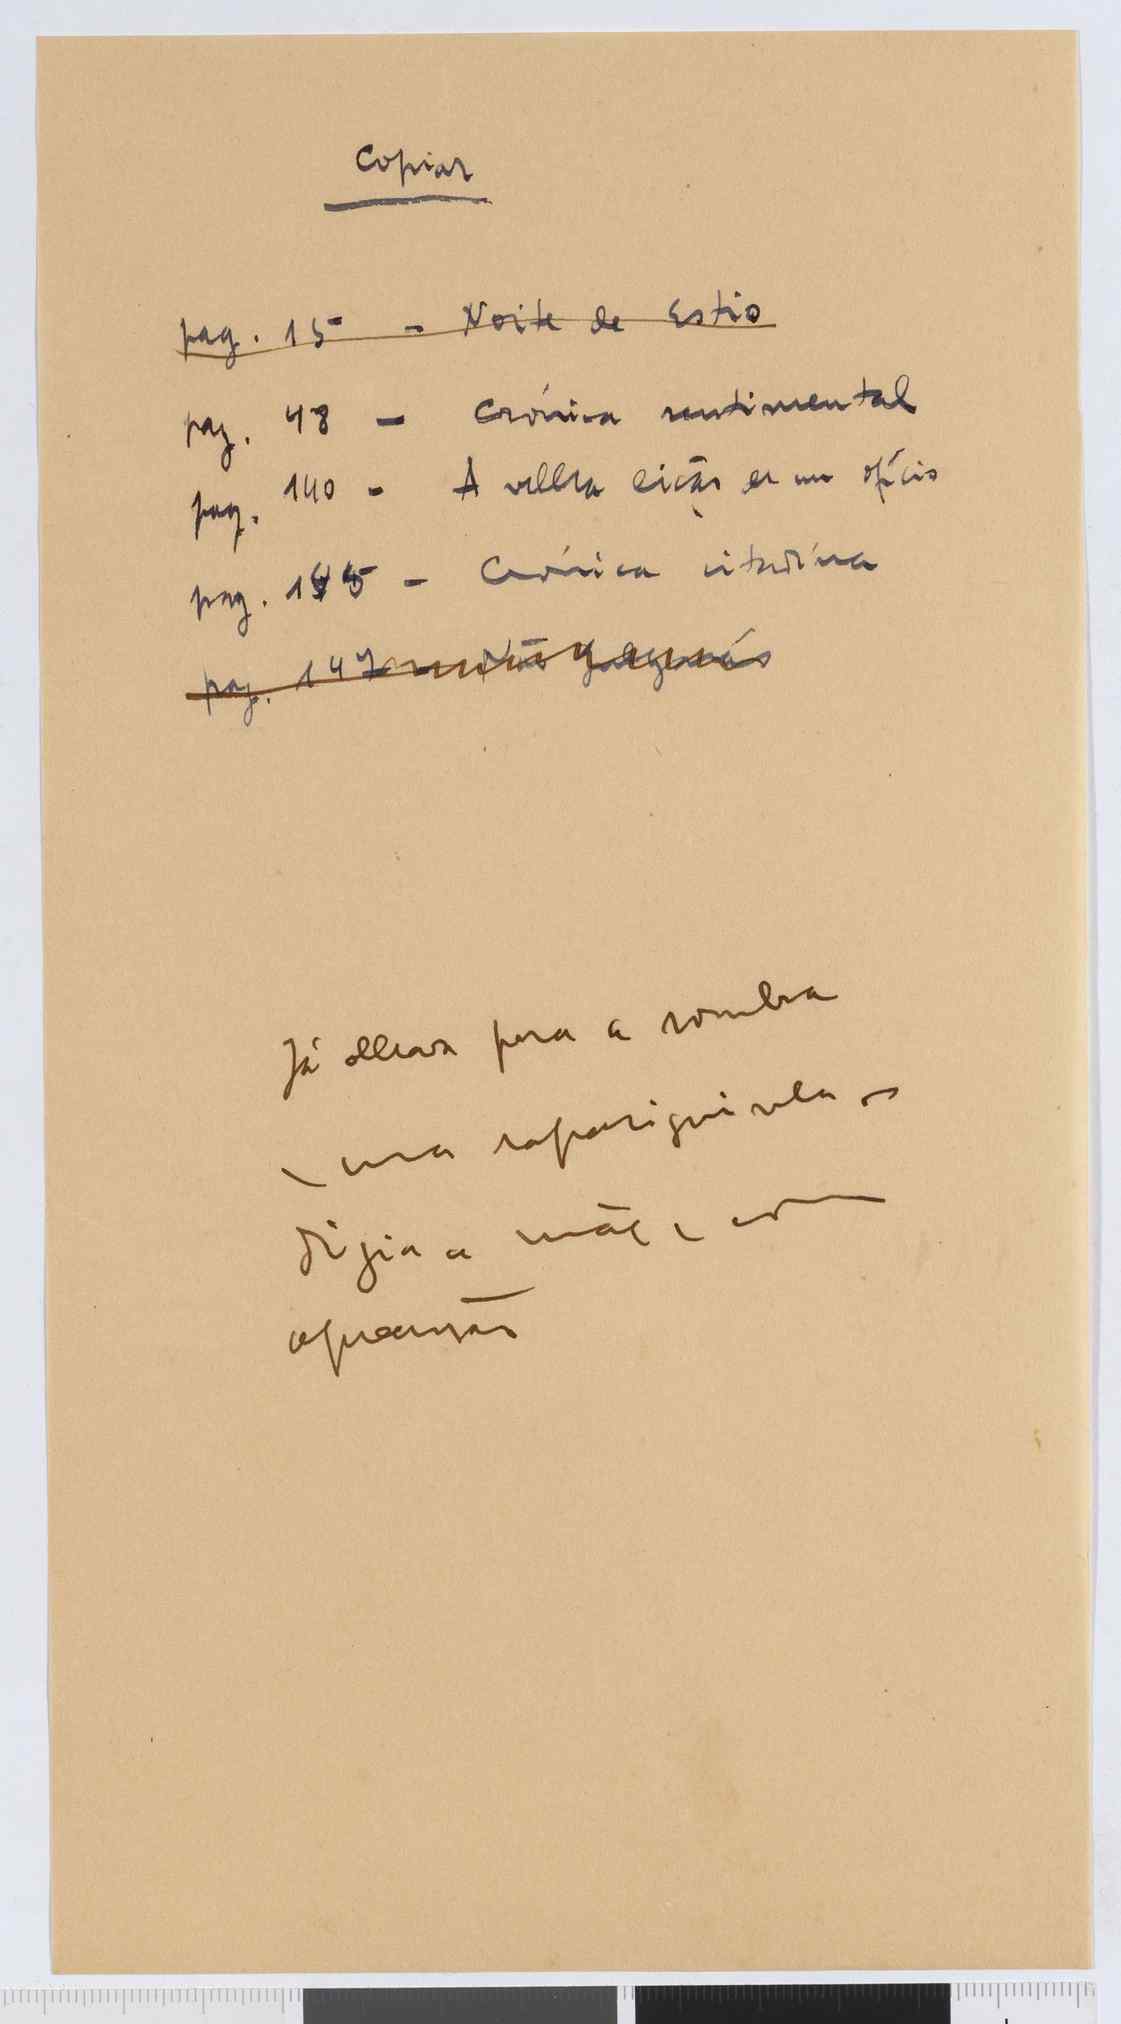 Copiar
pag. 15 - Noite de Estio
pag. 48 - Crónica sentimental
pag. 140 - A velha lição er um ofício
pag. 145 - Crónica citadina
pag. 147
Já olhava para a sombra
uma rapariguinha
dizia a mãe, com
apreensão